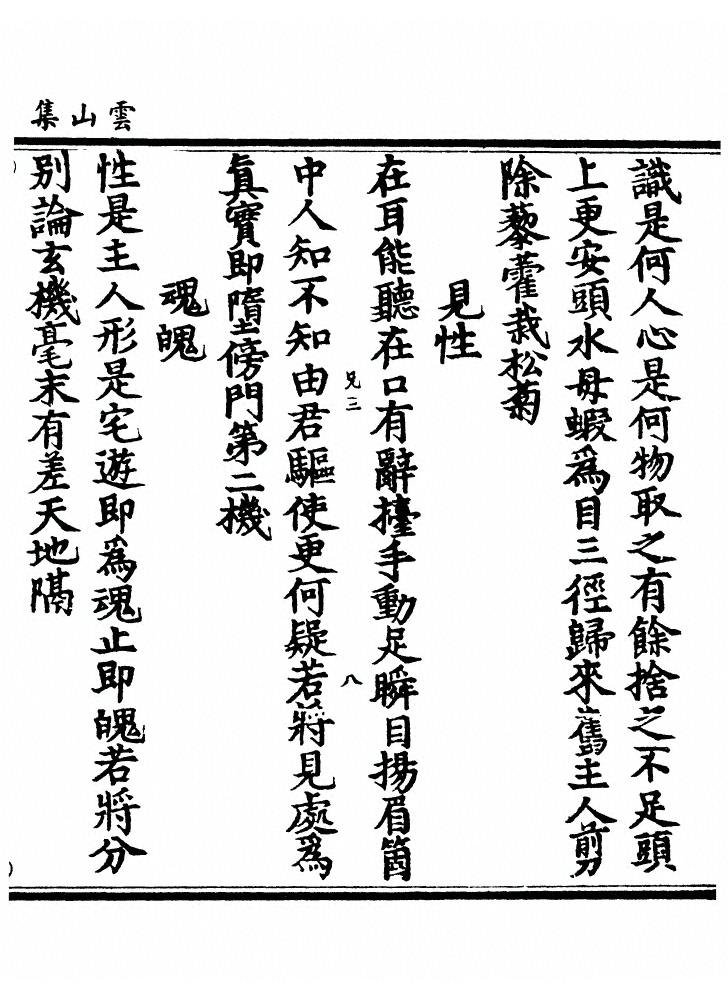 雲山集
識是何人心是何物取之有餘捨之不足頭
上更安頭水母蝦為目三徑歸來舊主人剪
除藜藿栽松菊
見性
在耳能聽在口有辭擡手動足瞬目揚眉箇
兄三
八
中人知不知由君驅使更何疑若將見處為
真實即墮傍門第二機
魂魄
性是主人形是宅遊即為魂止即魄若將分
別論玄機毫末有差天地隔